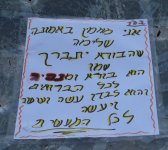 בס"ד
אני מאמין באמונה
שלימה
שהבורא יתברך
שמו
הוא בורא ומנהיג
לכל הברואים
והוא לבדו עשה ועושה
ויעשה
לכל המעשים